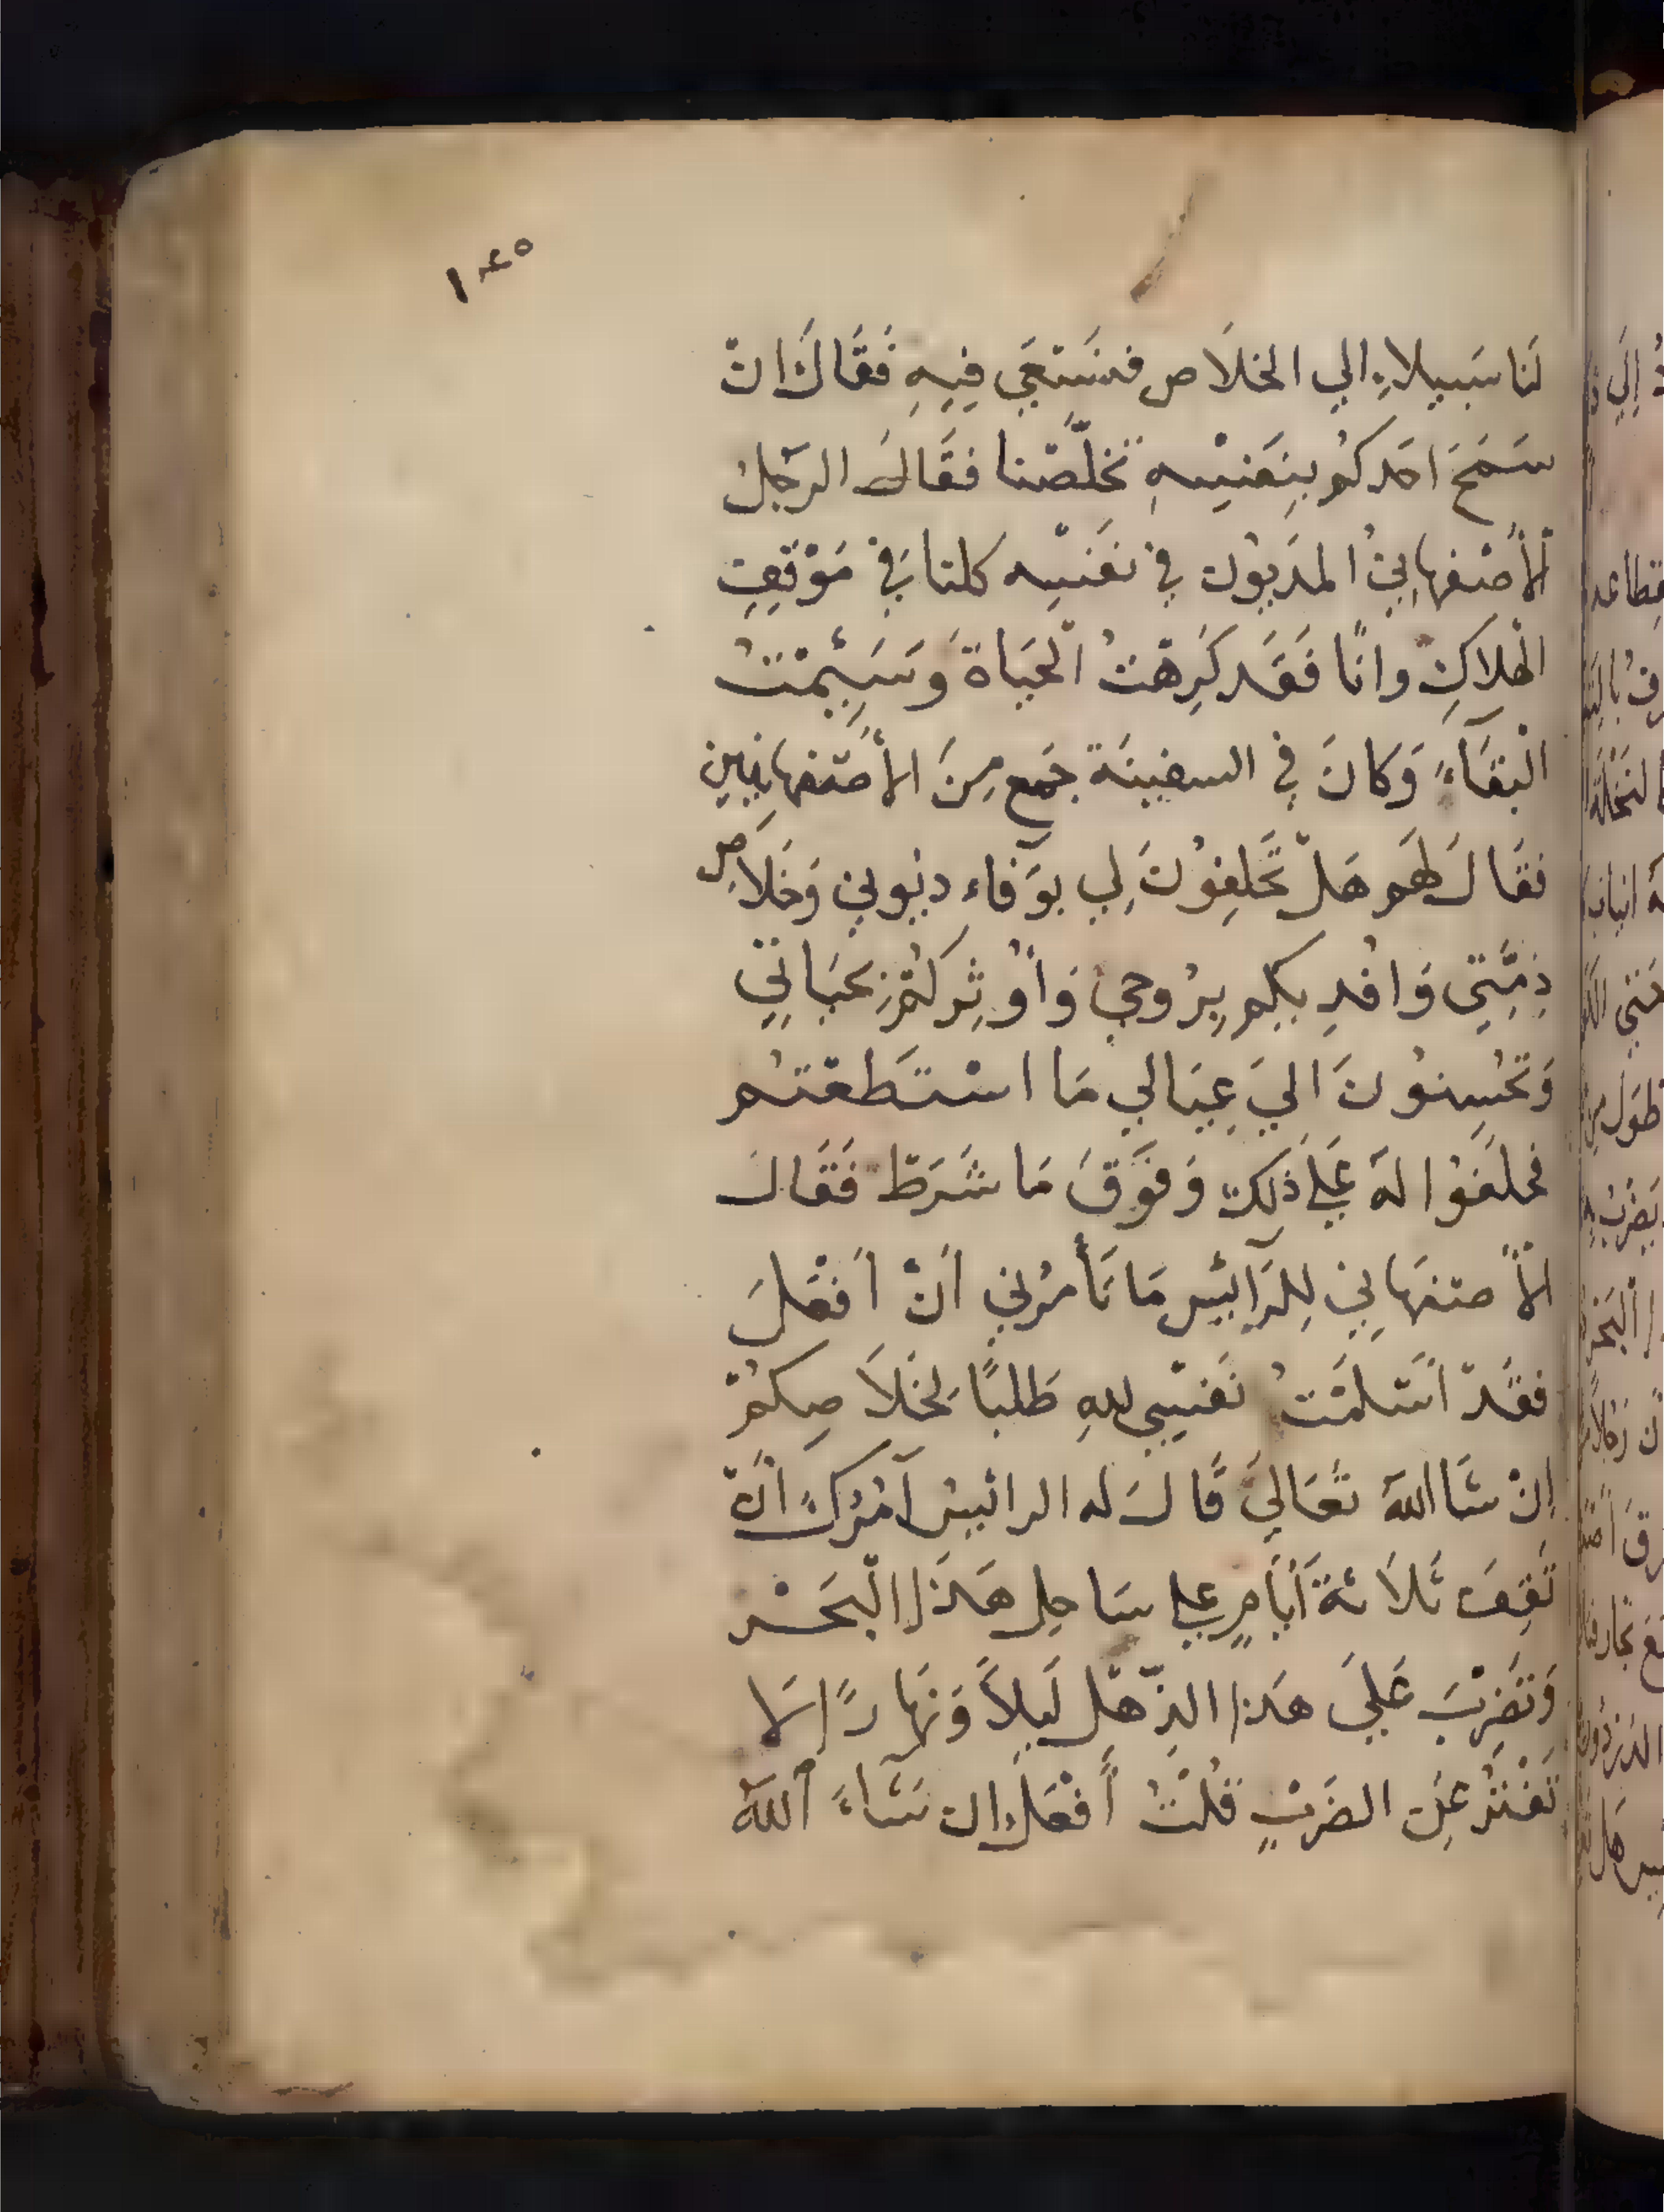 ١٤٥
لَنا سَبيلاً الي الخلَاص فنَسْعَي فِيهِ فَقَالَ ان
سَمَحَ احَدكُم بِنَفْسِهِ تخلّصْنا فقَالَ الرجلُ
الأصْفهانِيُ المديُون في نفسِه كلنا في مَوْقِفِ
الْهلاكِ وانَا فَقَد كَرِهْتُ الْحيَاة وَسَئِمْتُ
الْبقَآءَ وَكانَ في السفينَة جَمع مِنَ الأصْفهانِيين
فقَالَ لَهم هَلْ تَحلِفُونَ لِي بوَفاء ديُوني وَخلَاص
ذِمَّتِي وَافْدِيكم بِرُوحي وَأُوثِركُمْ بحَيَاتِي
وَتحْسِنُونَ اليَ عِيَالي مَا اسْتَطعْتُم
فحلَفُوا لَه عَلي ذلِكَ وَفَوْقَ مَا شَرَطَ فَقَالَ
الأصْفهَانِي لِلرَايِّس مَا تَأمُرُني أنْ أفْعَلَ
فقَدْ اسْلمْتُ نَفْسِي للهِ طَلبًا لخَلَاصِكُمْ
اِنْ شَا اللهَ تعَالي قَالَ له الرائيس آمُرُكَ أنْ
تَقِفَ ثَلَاثَةَ أيَّامٍ علي سَاحِل هَذَا الْبَحْر
وَتَضْرِبَ عَلَي هَذا الدّهْل لَيلاً وَنَهارًا لَا
تَفْتُرْ عَنِ الضَرْبِ قُلْتُ أَفْعَلُ ان شَآءَ اللهَ